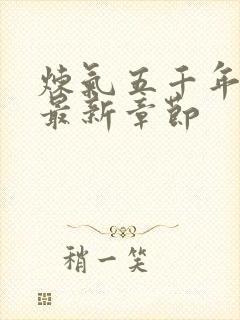 煉氣五千年
最新章節
稍一笑